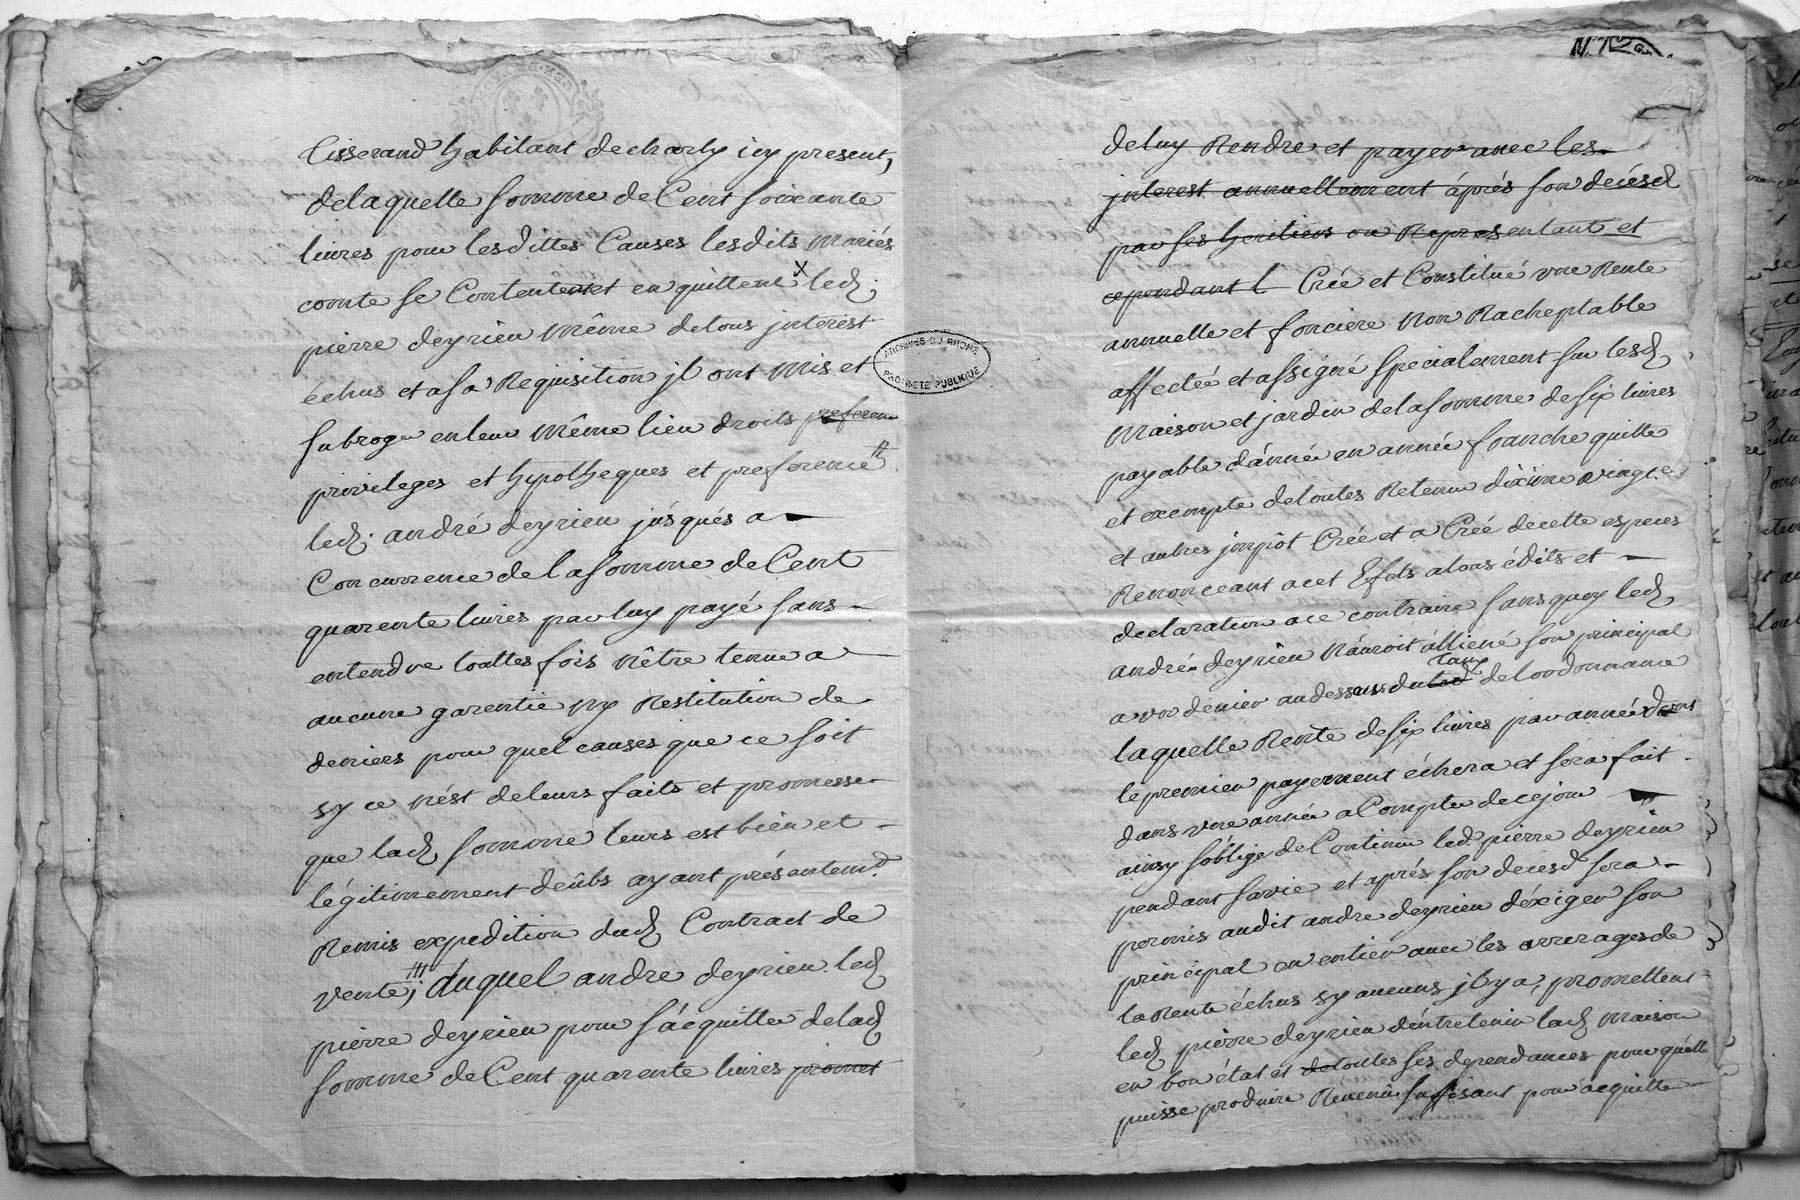 tisserand habitant decharly icy present,
delaquelle somme de Cent soixante
livres pour lesdittes Causes lesdits mariés
comte se Contentent et en quittent X led.
pierre deyrieu même detous jnterest
échus et asa Requisition jl ont mis et
subrogé enleur même lieu droits preference
privileges et hypotheques et preference //
led. andré deyrieu jusqués a
Concurrence de lasomme de Cent
quarente livres par luy payé sans
entendre touttes fois nêtre tenue a
aucune garentie ny Restitution de
deniers pour quel causes que ce soit
sy ce nést deleurs faits et promesse
que lad. somme leurs est bien et
légitimement deûbs ayant présentemt.
Remis expedition dud. Contract de
vente, /// duquel andre deyrieu led.
pierre deyrieu pour sácquitter delad.
somme de Cent quarente livres promet
ARCHIVES DU RHONE
PROPRIETE PUBLIQUE
deluy Rendre et payer avec les
jnterest annuellement áprés son decésd
par ses heritiers ou Representant et
cependant l Créé et Constitué une Rente
annuelle et fonciere non Racheptable
affectée et assigné specialement sur lesd.
Maison et jardin delasomme de six livres
payable dánnée en année franche quitte
et exempte detoutes Retenue dixiéme vingte.
et autres jmpôt Créé et a Créé decette especes
Renonceant acet Efets atous édits et
declaration ace contraire sansquoy led.
andré deyrieu náuroit álliené son principal
a un denier audessus dutaux delordonnance
laquelle Rente desix livres par année dont
lepremier payement échera et sera fait
dans une année a Compter decejour
ainsy sóblige de Continuer led. pierre deyrieu
pendant savie et aprés son decesd sera
permis audit andre deyrieu déxiger son
principal en entier avec les arrerages de
la Rente échus sy aucuns jl y a, promettent
led. pierre deyrieu déntretenir lad. Maison
en bon état et detoutes ses dependances pour quélle
puisse produire Revenu suffisant pour acquitter